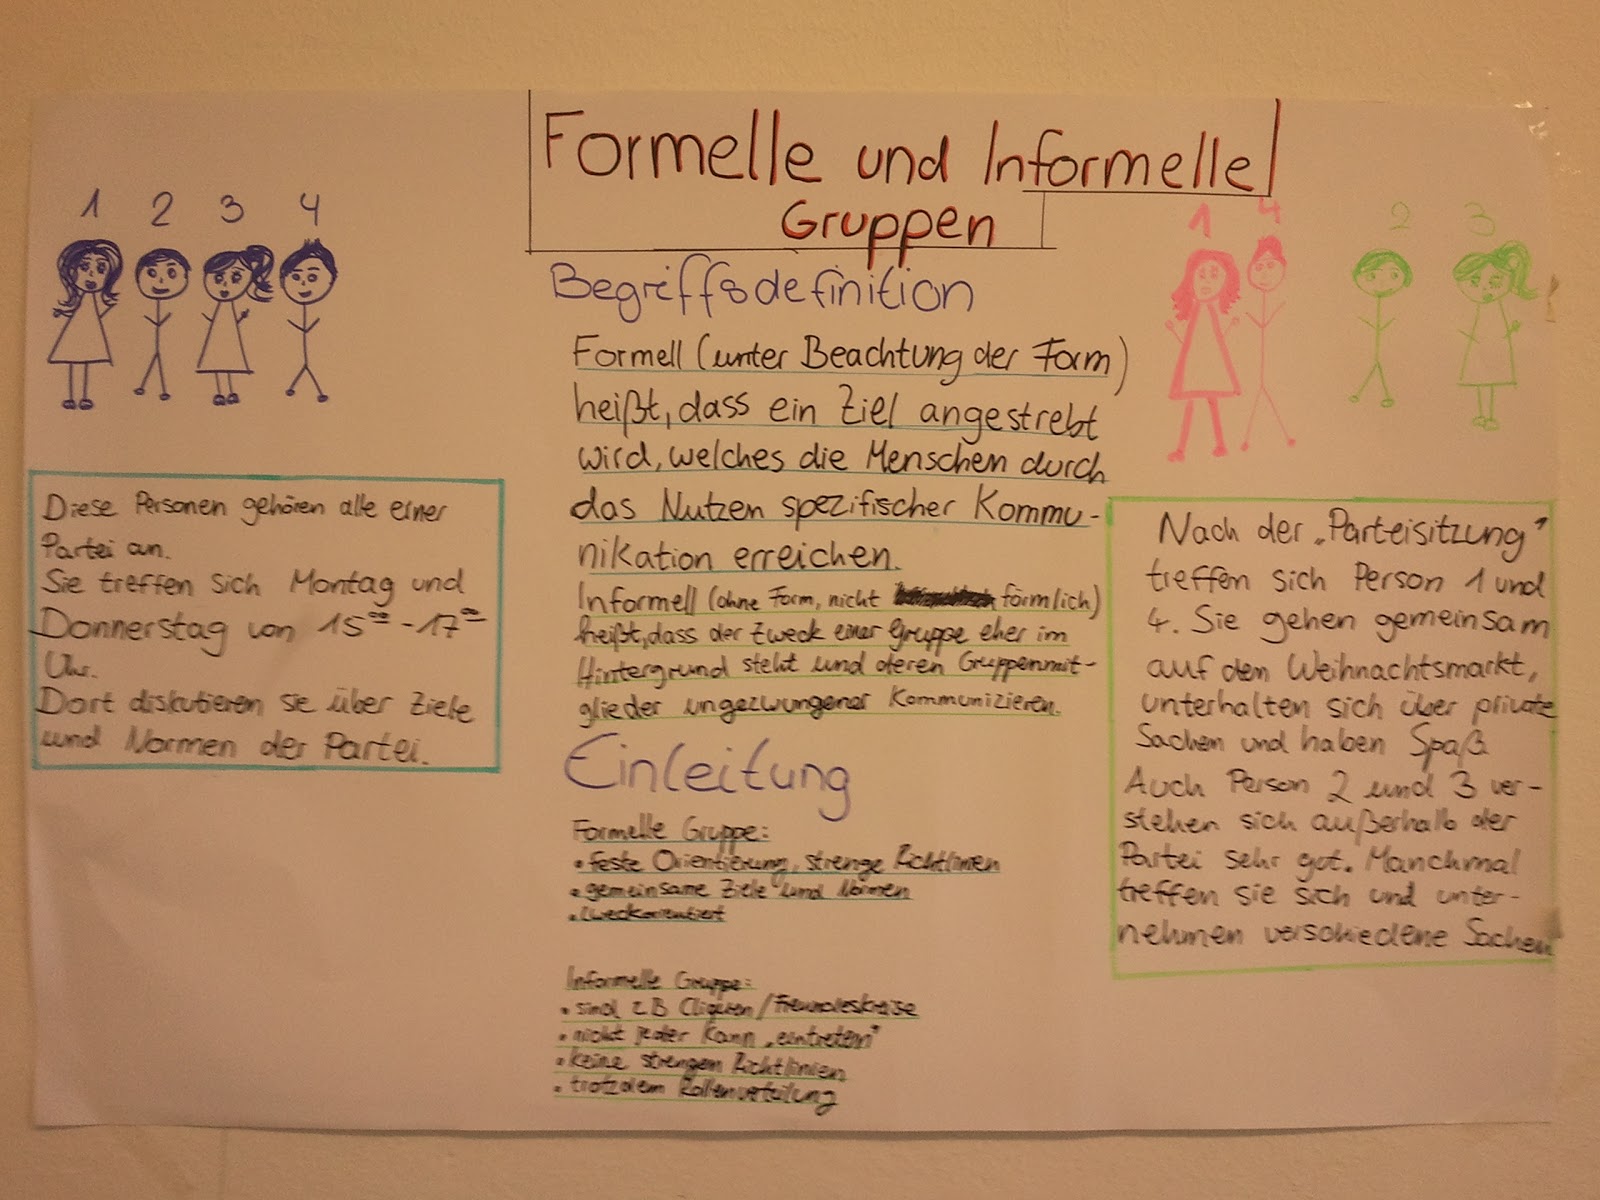 Formelle und Informelle
Gruppen
1 2 3 4
Diese Personen gehören alle einer
Partei an.
Sie treffen sich Montag und
Donnerstag von 15⁰⁰-17⁰⁰
Uhr.
Dort diskutieren sie über Ziele
und Normen der Partei.
Begriffsdefinition
Formell (unter Beachtung der Form)
heißt, dass ein Ziel angestrebt
wird, welches die Menschen durch
das Nutzen spezifischer Kommu-
nikation erreichen.
Informell (ohne Form, nicht förmlich)
heißt, dass der Zweck einer Gruppe eher im
Hintergrund steht und deren Gruppenmit-
glieder ungezwungener Kommunizieren.
Einleitung
Formelle Gruppe:
• feste Orientierung, strenge Richtlinien
• gemeinsame Ziele und Normen
• zweckorientiert
Informelle Gruppe:
• sind z B Cliquen/Freundeskreise
• nicht jeder kann „eintreten"
• keine strengen Richtlinien
• trotzdem Rollenverteilung
1 4 2 3
Nach der „Parteisitzung"
treffen sich Person 1 und
4. Sie gehen gemeinsam
auf dem Weihnachtsmarkt,
unterhalten sich über private
Sachen und haben Spaß.
Auch Person 2 und 3 ver-
stehen sich außerhalb der
Partei sehr gut. Manchmal
treffen sie sich und unter-
nehmen verschiedene Sachen